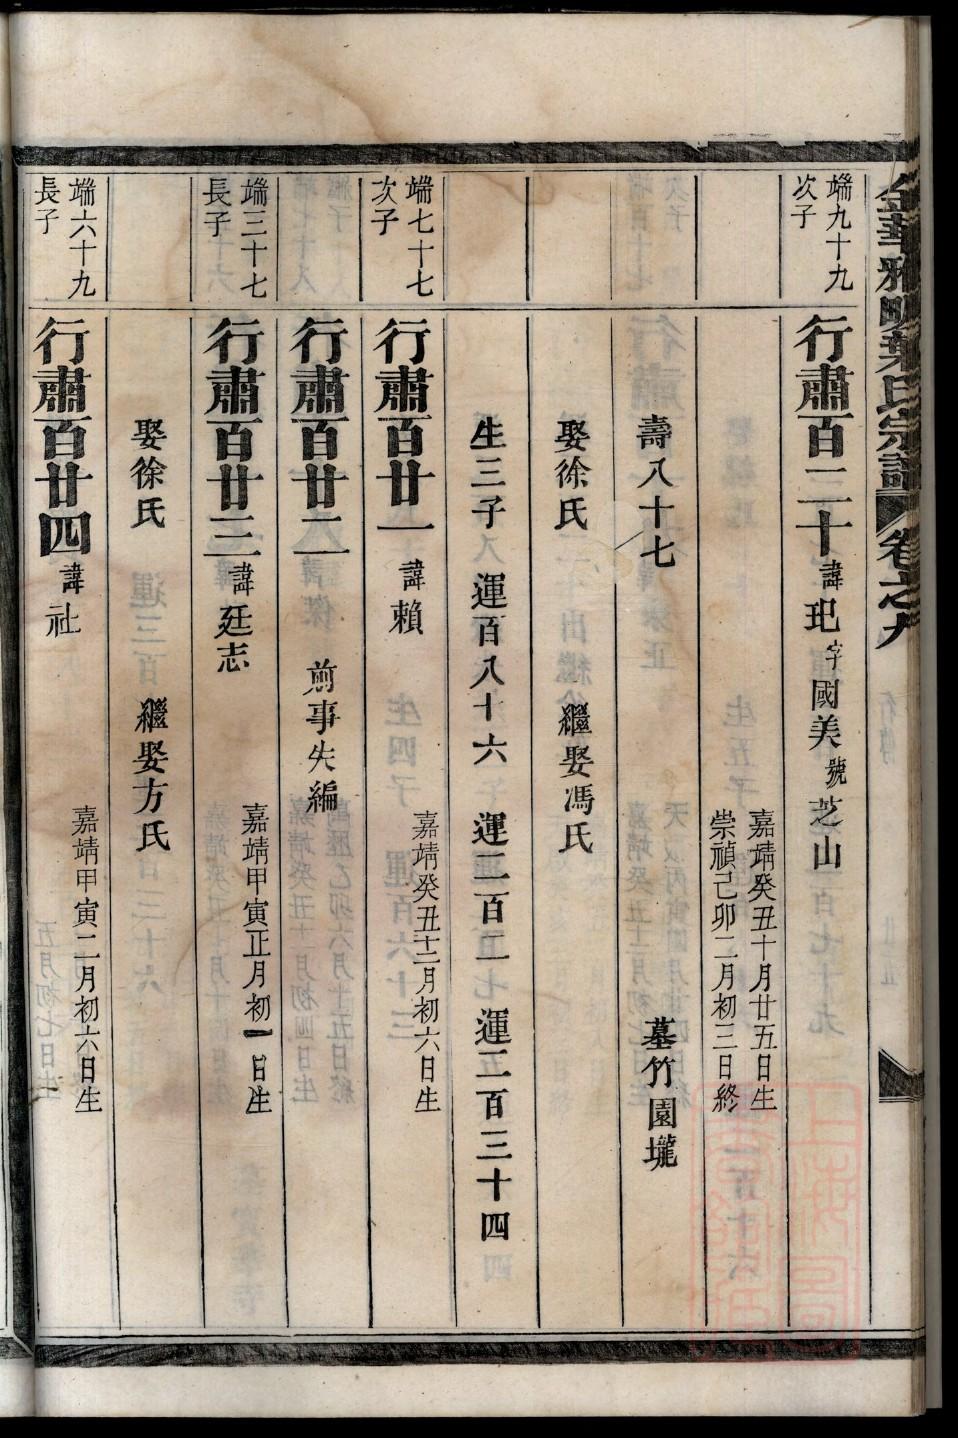 金華雅畈葉氏宗譜 卷之九
端九十九
次子
行肅百二十 諱玘 字國美 號芝山
嘉靖癸丑十月廿五日生
崇禎己卯二月初三日終
壽八十七 墓竹園壠
娶徐氏 繼娶馮氏
生三子 運百八十六 運二百二 運二百三十四
端七十七
次子
行肅百廿一 諱賴
嘉靖癸丑十二月初六日生
行肅百廿二 諱傑 前事失編
端三十七
長子
行肅百廿三 諱廷志
嘉靖甲寅正月初一日生
娶徐氏 繼娶方氏
端六十九
長子
行肅百廿四 諱社
嘉靖甲寅二月初六日生